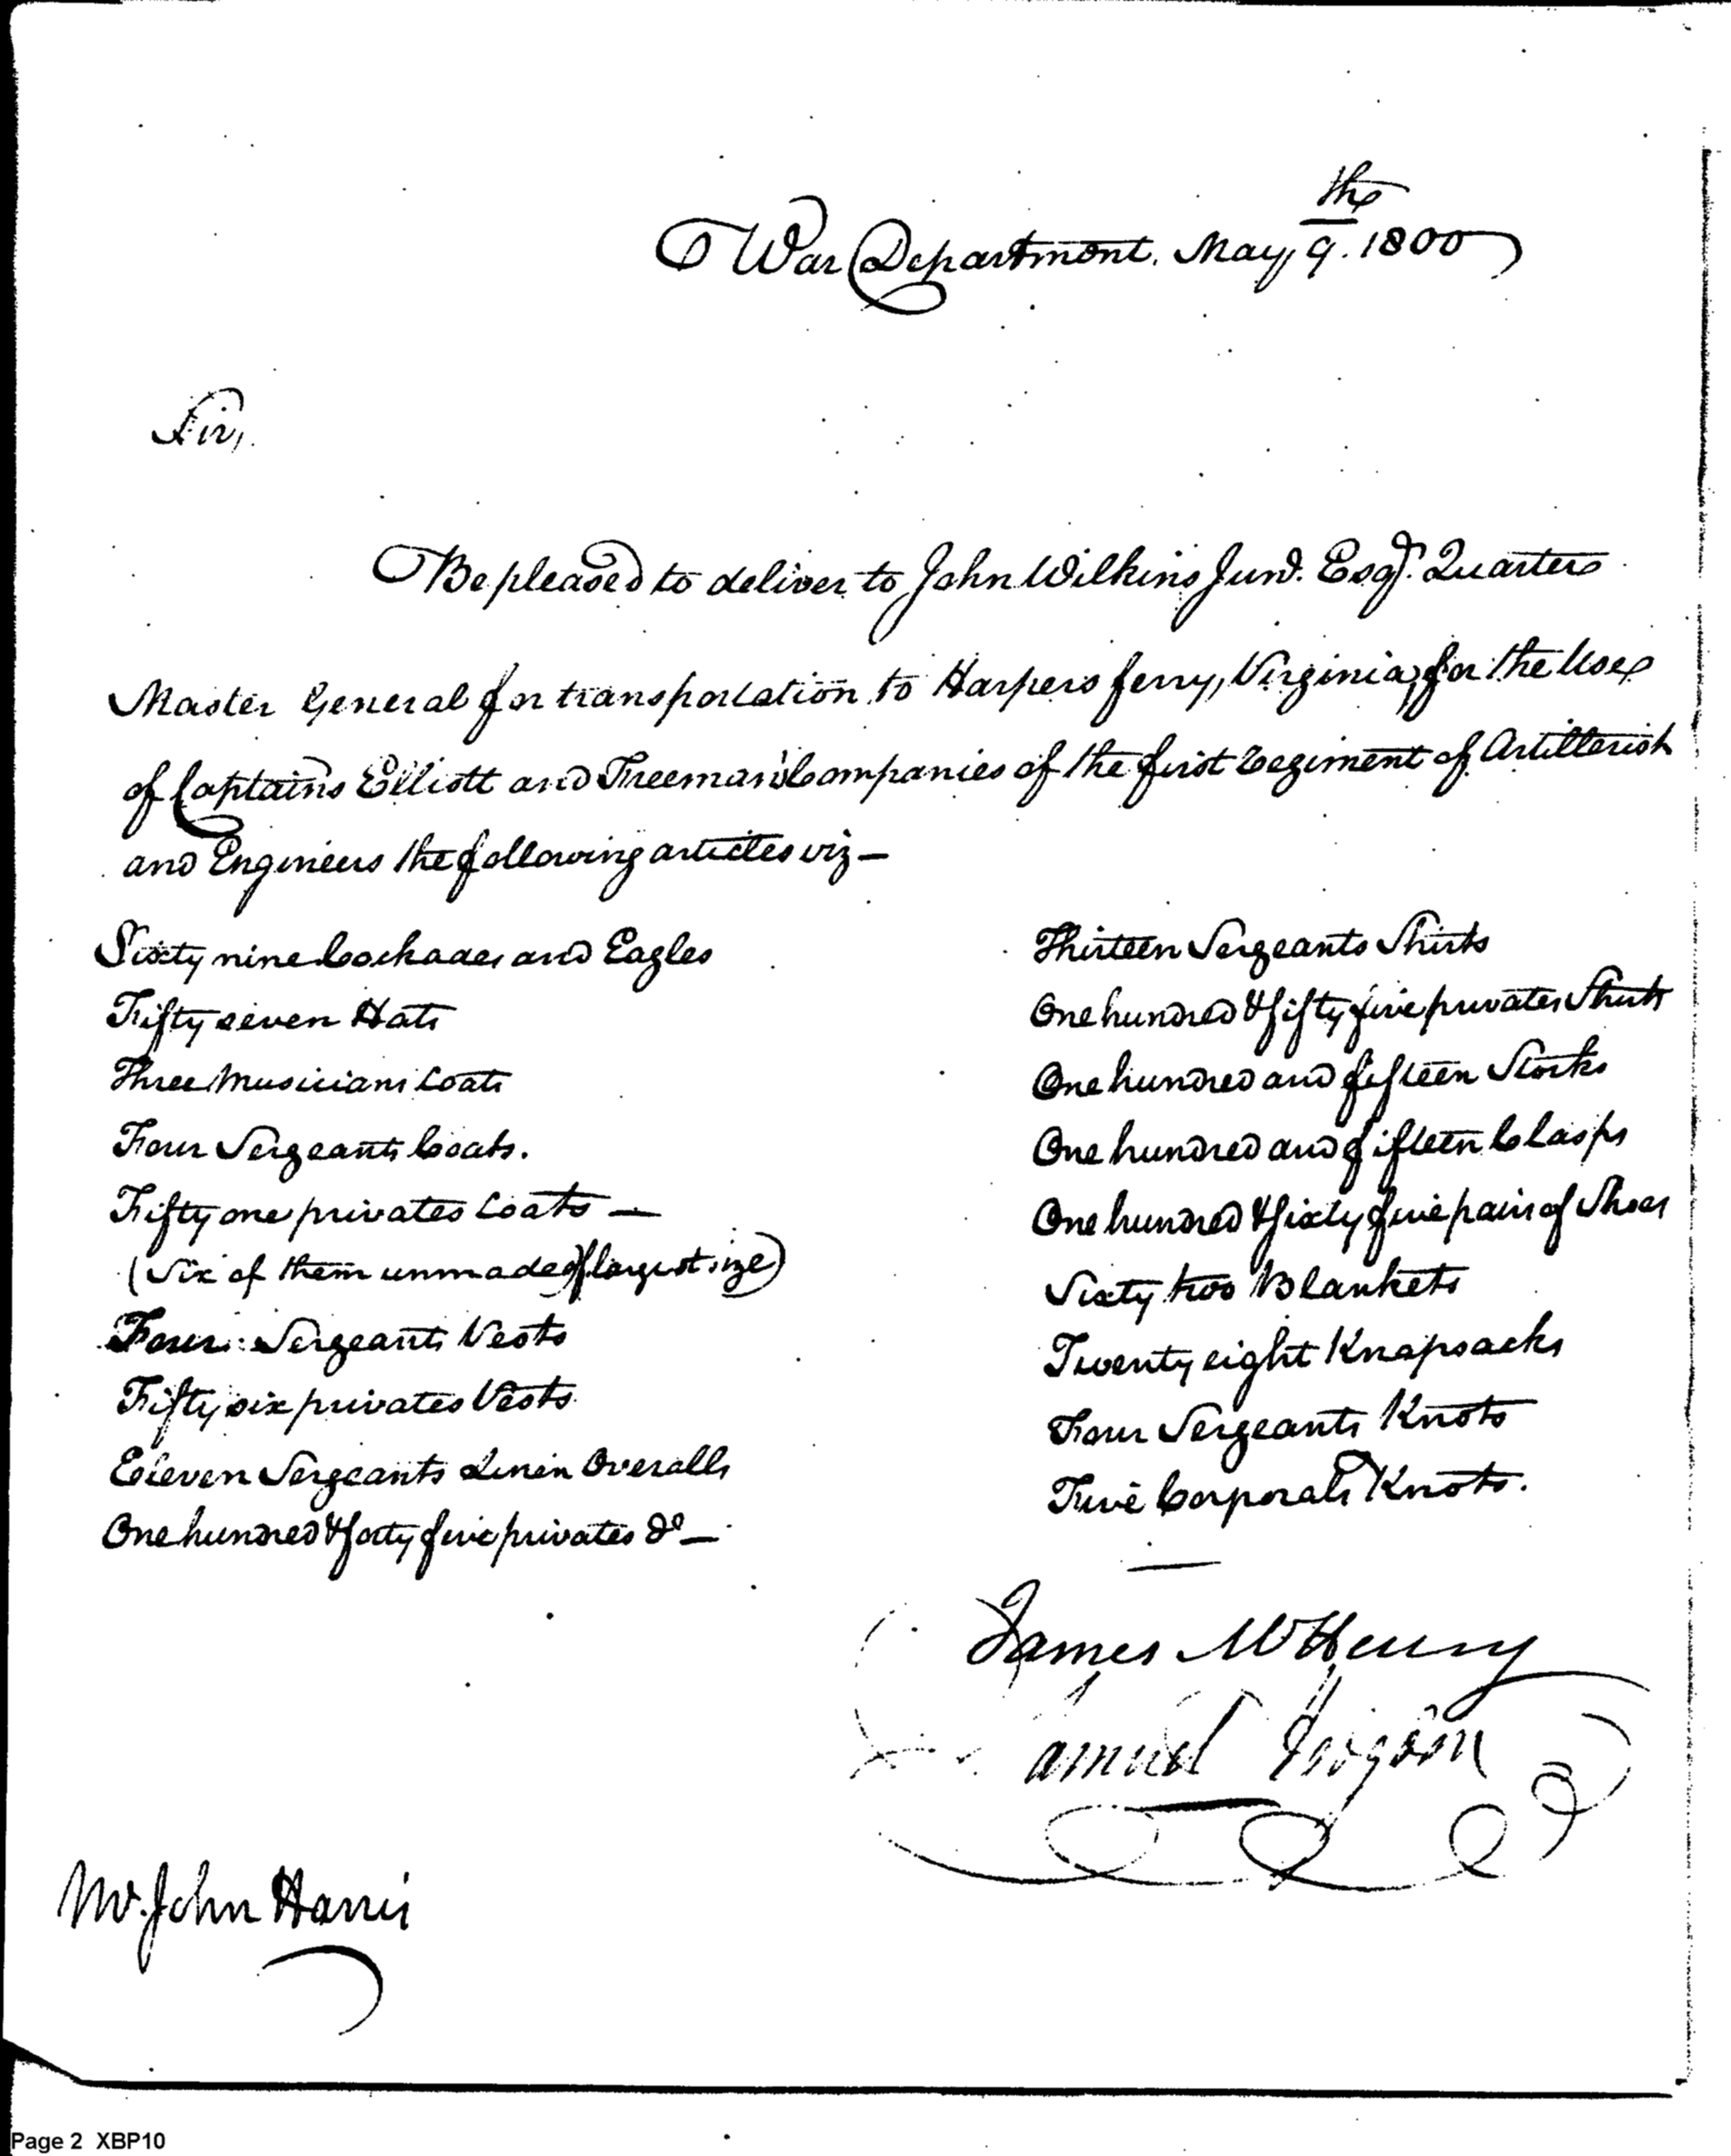 War Department. May 9.th 1800
Sir,
Be pleased to deliver to John Wilkins Junr. Esqr. Quarter
Master General for transportation to Harpers ferry, Virginia, for the Use
of Captains Elliott and Freeman's Companies of the first Regiment of Artillerist
and Engineers the following articles viz —
Sixty nine Cockades and Eagles
Fifty seven Hats
Three Musicians Coats
Four Sergeants Coats.
Fifty one privates Coats —
(Six of them unmade of largest size)
Four Sergeants Vests
Fifty six privates Vests
Eleven Sergeants Linen Overalls
One hundred & forty five privates Do —
Thirteen Sergeants Shirts
One hundred & fifty five privates Shirts
One hundred and fifteen Stocks
One hundred and fifteen Clasps
One hundred & sixty five pairs of Shoes
Sixty two Blankets
Twenty eight Knapsacks
Four Sergeants Knots
Five Corporals Knots.
James McHenry
Samuel Hodgdon
Mr. John Harris
Page 2 XBP10